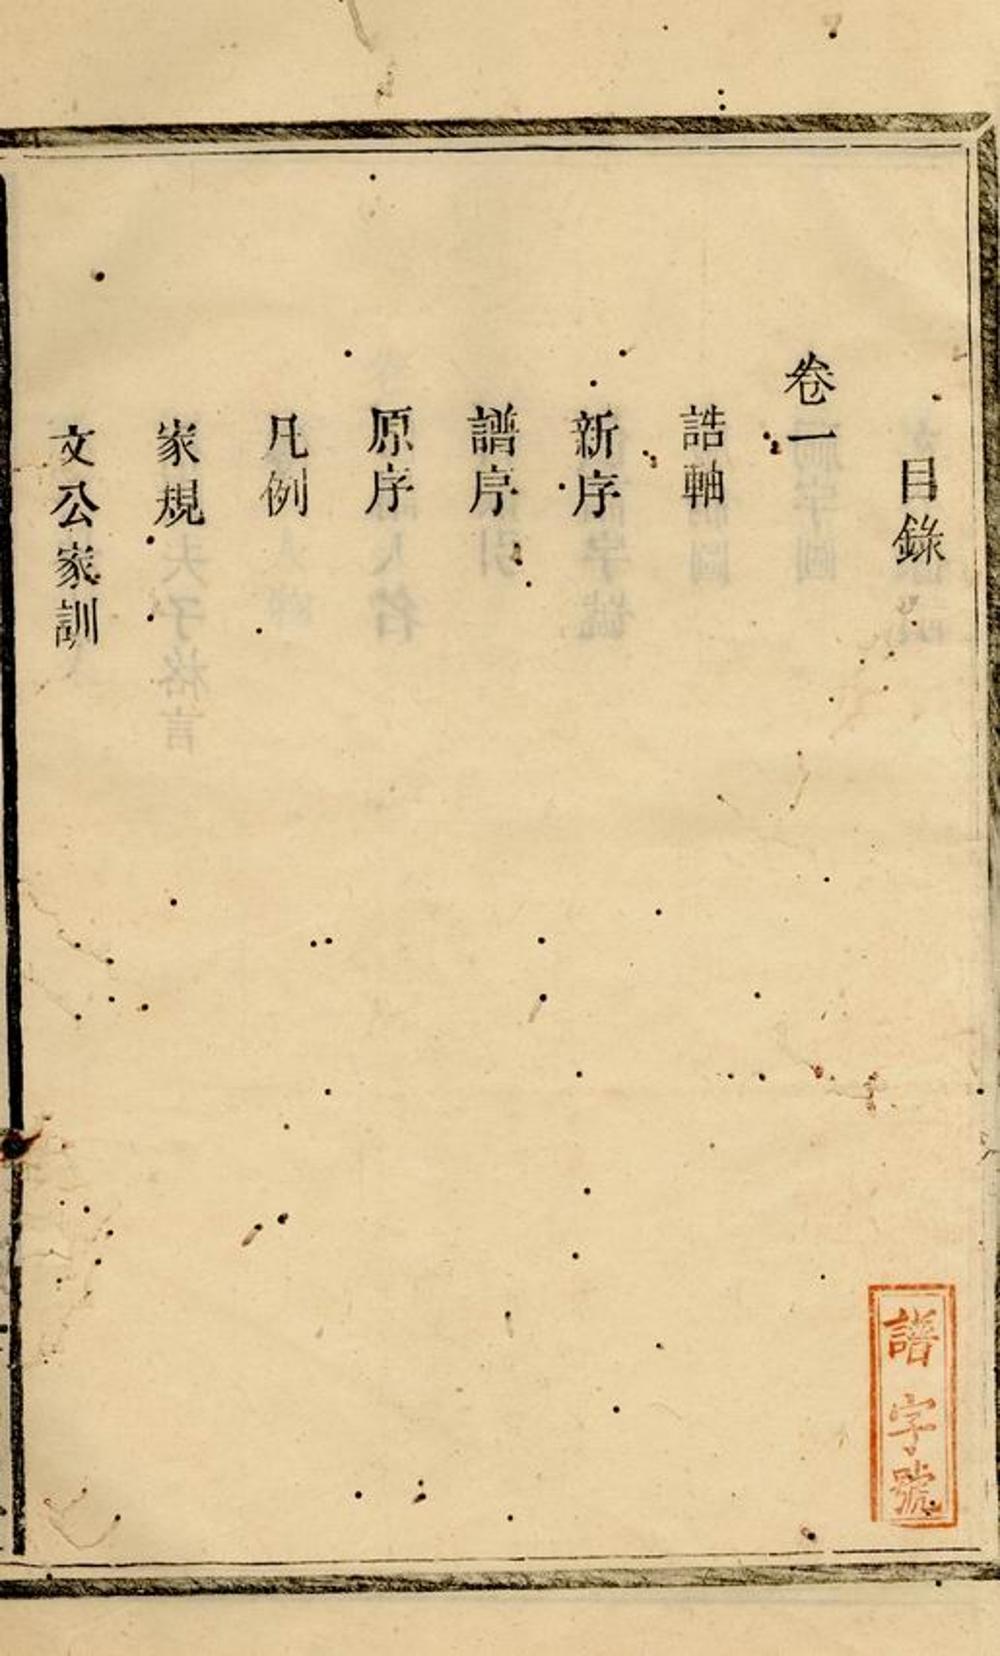 目錄
卷一
誥軸
新序
譜序
原序
凡例
家規
文公家訓
譜字號